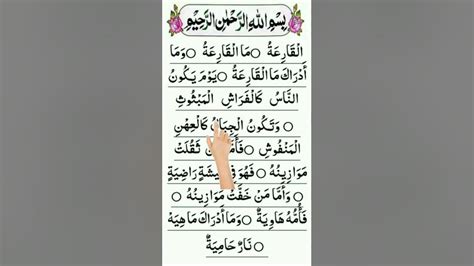 بِسْمِ اللهِ الرَّحْمٰنِ الرَّحِيْمِ
الْقَارِعَةُ ○ مَا الْقَارِعَةُ ○ وَمَا
أَدْرَاكَ مَا الْقَارِعَةُ ○ يَوْمَ يَكُونُ
النَّاسُ كَالْفَرَاشِ الْمَبْثُوثِ
○ وَتَكُونُ الْجِبَالُ كَالْعِهْنِ
الْمَنْفُوشِ ○ فَأَمَّا ثَقُلَتْ
مَوَازِينُهُ ○ فَهُوَ فِي رَاضِيَةٍ
○ وَأَمَّا مَنْ خَفَّتْ مَوَازِينُهُ ○
فَأُمُّهُ هَاوِيَةٌ ○ وَمَا أَدْرَاكَ مَا هِيَهْ
○ نَارٌ حَامِيَةٌ